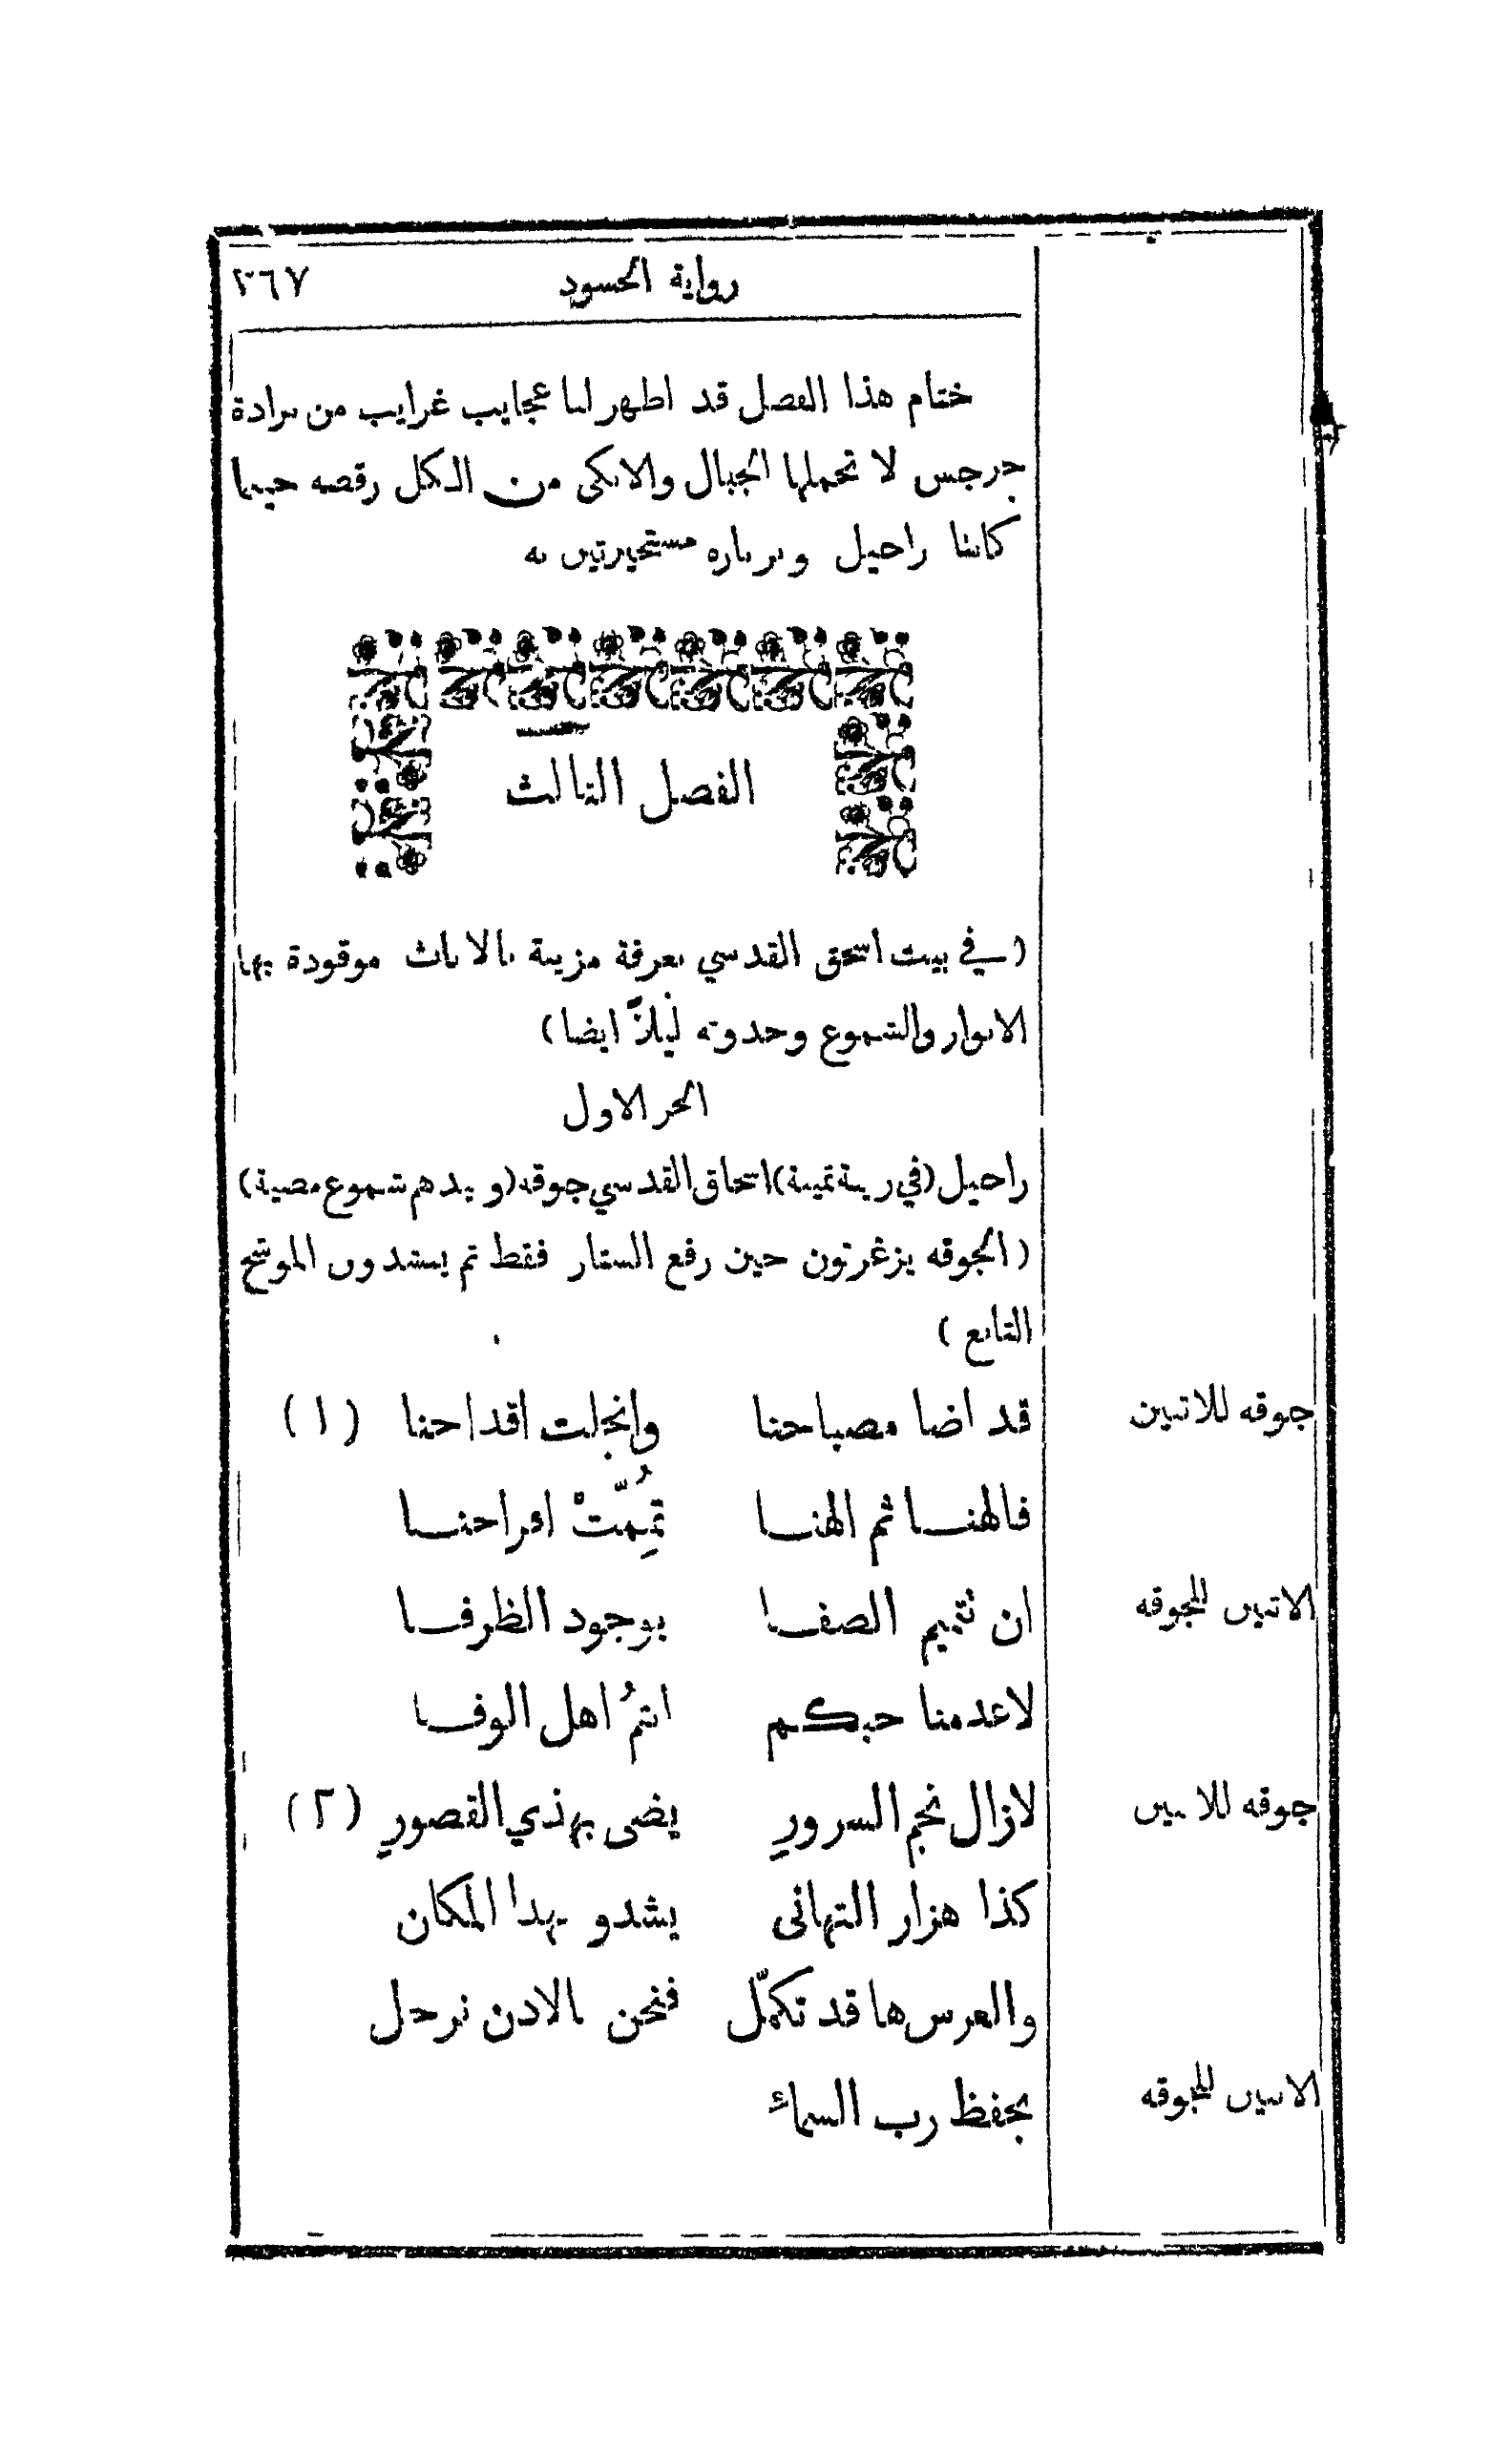 رواية الحسود ٣٦٧
ختام هذا الفصل قد اظهر لنا عجايب غرايب من برادة
جرجس لا تحملها الجبال والانكى من الكل رقصه حينما
كانتا راحيل وبرباره مستحيرتين به
الفصل الثالث
(في بيت اسحق القدسي بغرفة مزينة بالاثاث موقودة بها
الانوار والشموع وحدوثه ليلاً ايضا)
الجزء الاول
راحيل (في زينة ثمينة) اسحاق القدسي جوقه (وبيدهم شموع مضية)
(الجوقه يزغرتون حين رفع الستار فقط ثم ينشدون الموشح
التابع)
جوقه للاثنين قد اضا مصباحنا وانجلت اقداحنا (١)
فالهنا ثم الهنا تُمِّمتْ افراحنا
الاثنين للجوقه ان تتميم الصفا بوجود الظرفا
لاعدمنا حبكم انتمُ اهل الوفا
جوقه للاثنين لازال نجم السرورِ يضى بهذي القصورِ (٢)
كذا هزار التهانى يشدو بهذا المكان
والعرس ها قد تكمّل فنحن بالاذن نرحل
الاثنين للجوقه بحفظ رب السماء